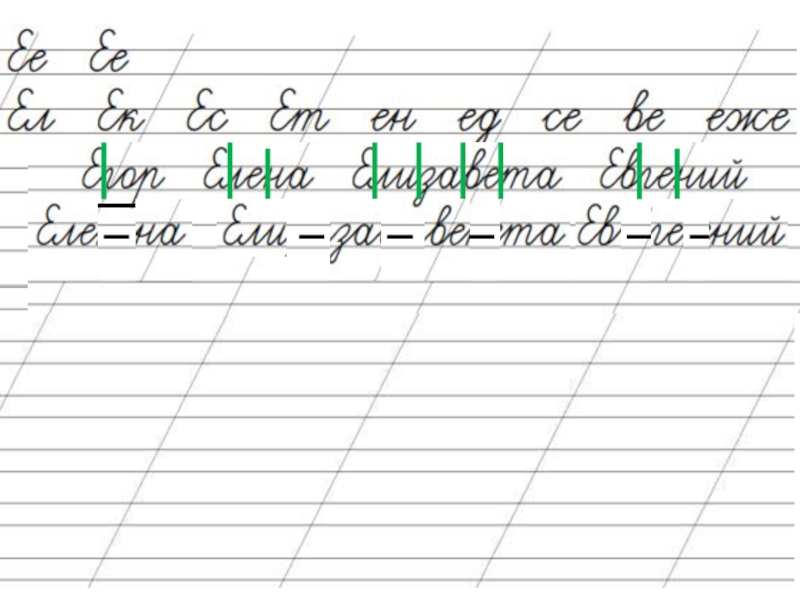 Ее Ее
Ел Ек Ес Ет ен ед се ве еже
Егор Елена Елизавета Евгений
Еле – на Ели – за – ве – та Ев – ге – ний